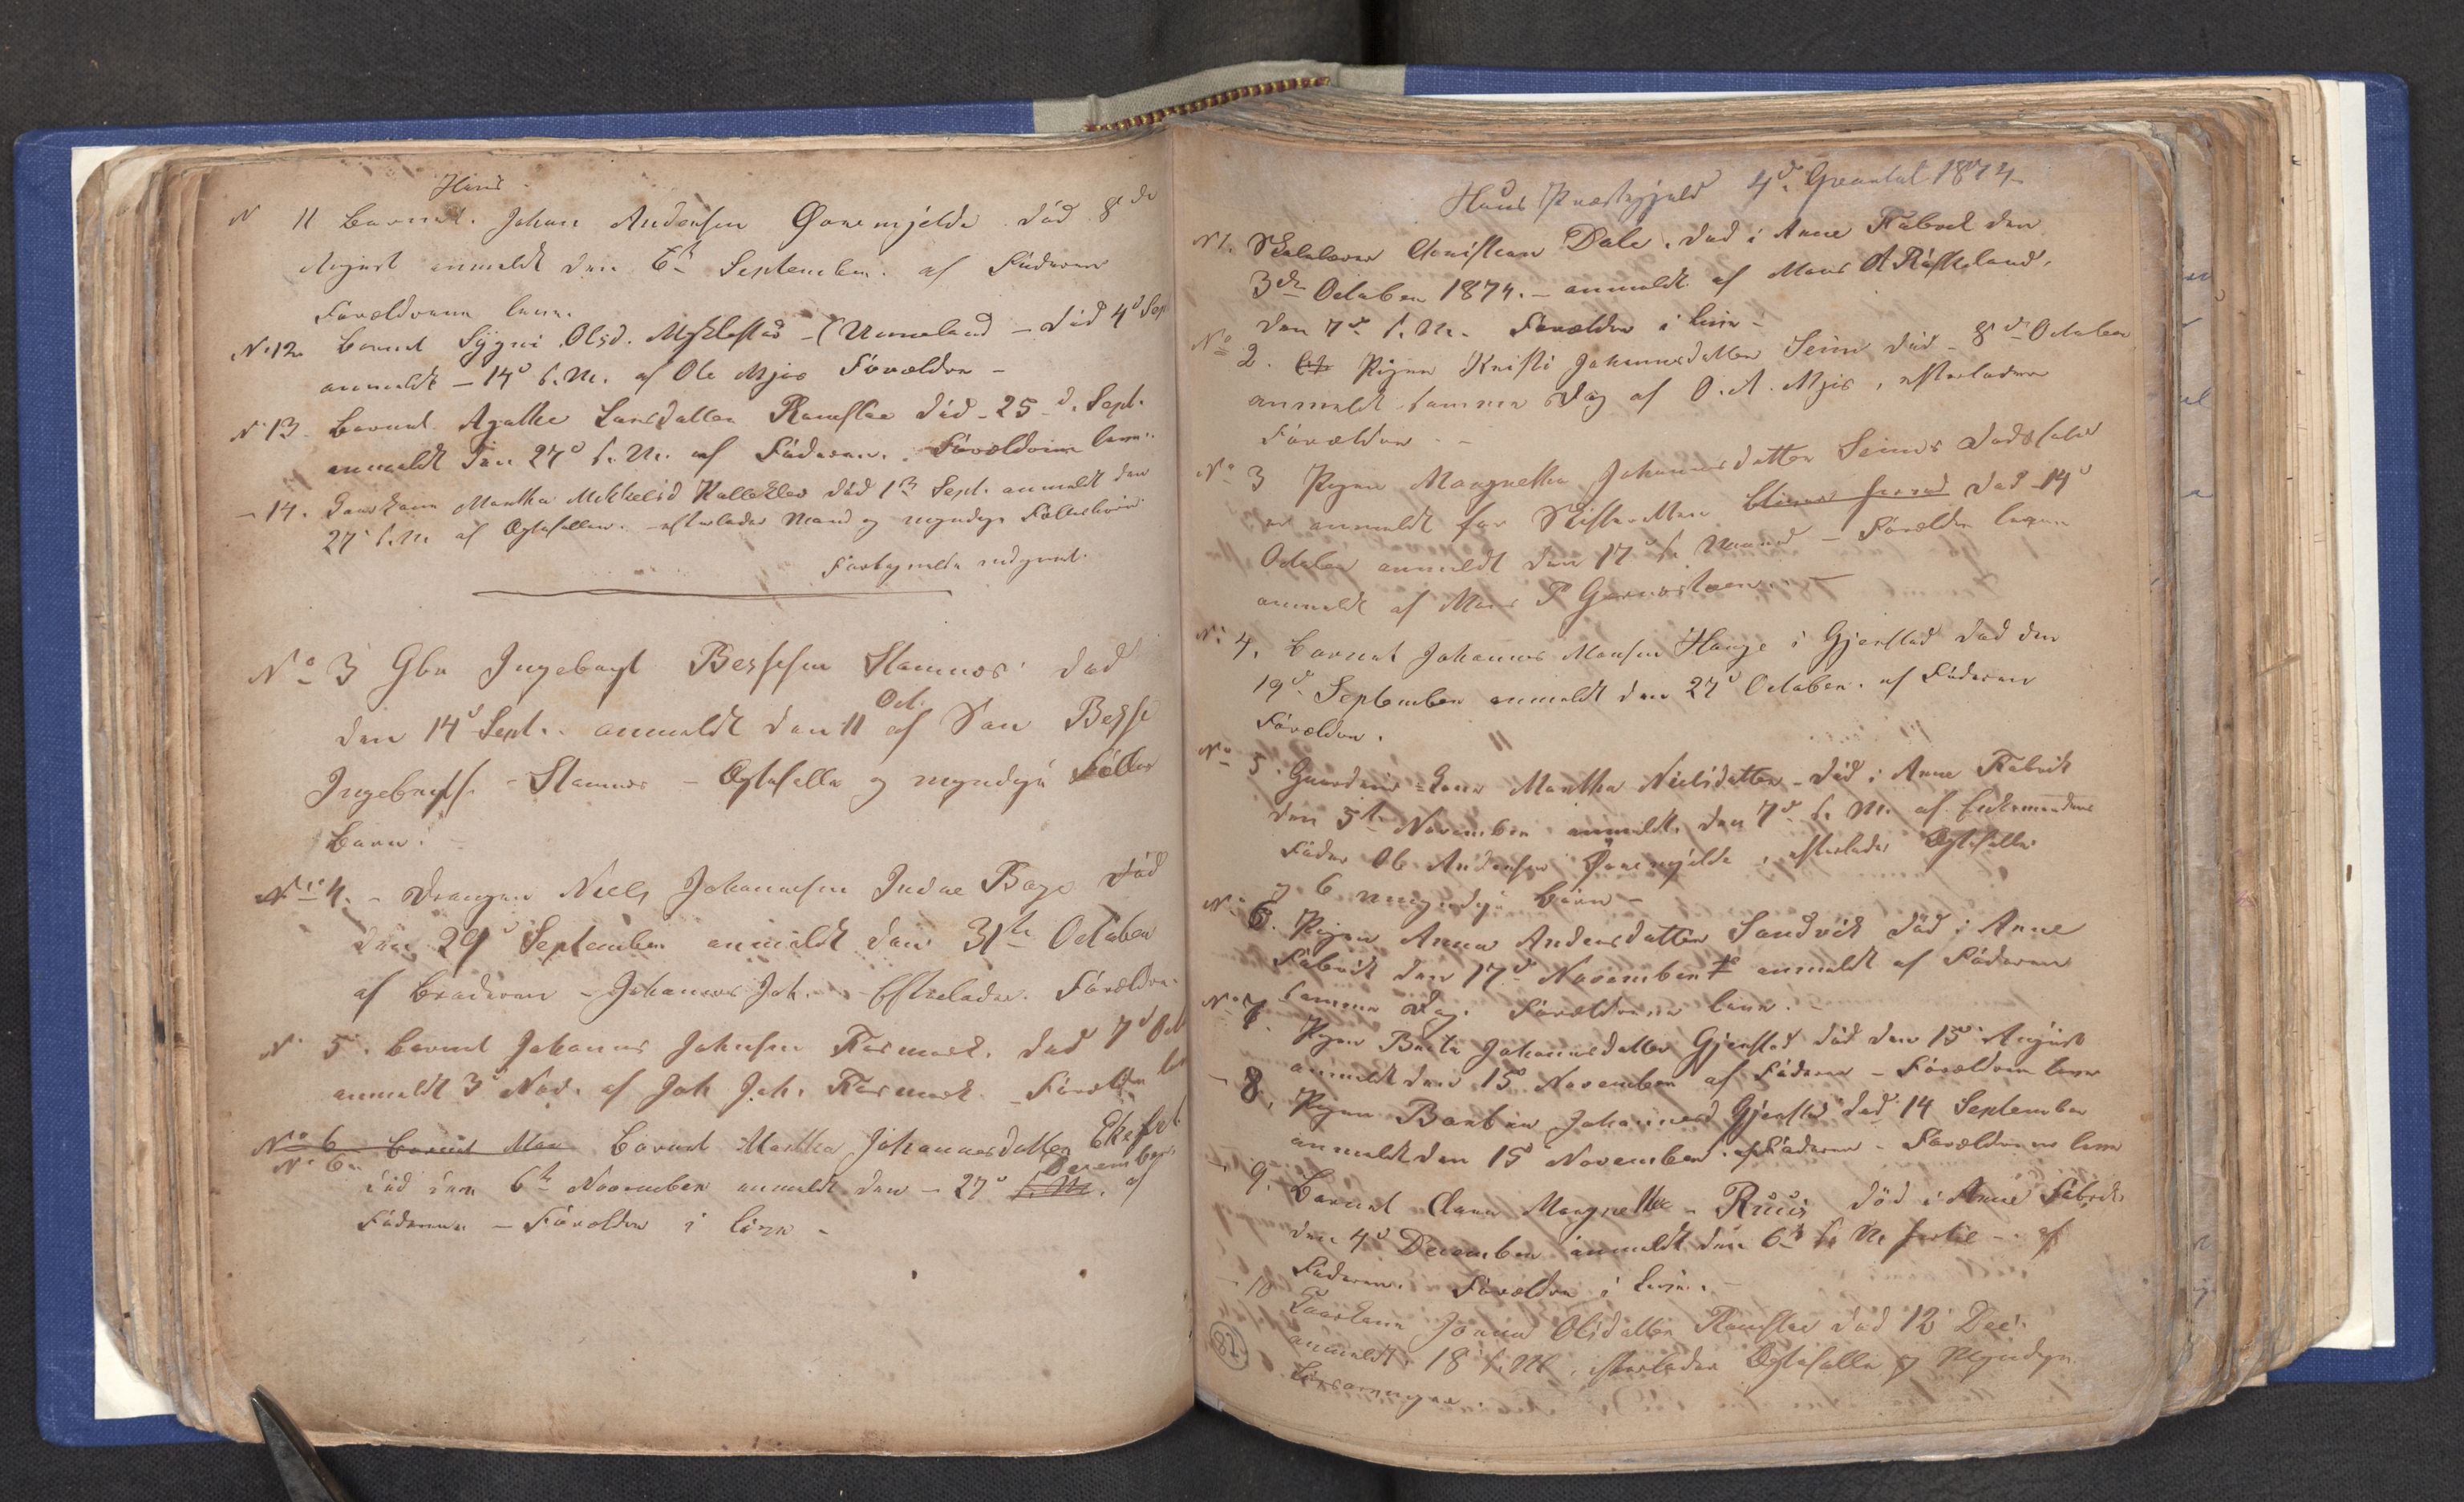 Haus
N 11 Barnet. Johan Andersen Øvremjelde død 8de
August anmeldt den 6te September. af Faderen
Forældrene leve.
No 12 Barnet Sygni Olsd. Myklestad - (Unneland - død 4d Sep
anmeldt - 14d s. M. af Ole Mjøs Forældre -
No 13 Barnet Agathe Larsdatter Ramslae død - 25 d. Sept.
anmeldt den 27d s. M. af Faderen. Forældrene leve.
- 14. Huuskone Martha Mikkelsd Kalleklev død 1ste Sept. anmeldt den
27d s. M. af Ægtefællen. - efterlader Mand og myndige Fællesbørn
Fortegnelse indgivet.
No 3 Gbr Ingebrigt Bessesen Stamnæs død
den 14d Sept. anmeldt den 11 Oct. af Søn Besse
Ingebrigts. - Stamnæs - Ægtefælle og myndige Fælles
Børn.
No 4. - Drengen Niels Johannesen Indre Boge død
den 29d September anmeldt den 31te October
af Broderen - Johannes Joh. - Efterlader. Forældre.
No 5. Barnet Johannes Johnsen død 7d Oct
anmeldt 3d Nov. af Joh Joh. - Forældre lev
No 6 Barnet Mar Barnet Martha Johannesdatter
No 6. død den 6te November anmeldt den - 27d s. M. December af
Faderen - Forældre i live -
Haus Præstegjeld 4de Qvartal 1874
No 1. Skolelærer Christian Dale. død i Arne Fabrik den
3de October 1874. - anmeldt af Mons A
den 7de s. M. Forældre i live -
No 2. Pigen Kristi Johannesdatter Seim død - 8de October
anmeldt samme Dag af O. A. Mjøs, efterlader
Forældre -
No 3 Pigen Margrethe Johannesdatter Seims Dødsfald
er anmeldt for Skifteretten død 14d
October anmeldt den 17d s. Maaned - Forældre
anmeldt af Mons P Garnæstøen. -
No 4. Barnet Johannes Monsen Hauge i Gjerstad død den
19de September anmeldt den 27d October. af Faderen
Forældre.
No 5. Gaardmands Kone Martha Nielsdatter - død i Arne Fabrik
den 5te November anmeldt den 7de s. M. af
Fader Ole Andersen Øvremjelde, efterlader Ægtefælle
og 6 myndige Børn -
No 6. Pigen Anna Andersdatter Sandvik død i Arne
Fabrik den 17de November anmeldt af Faderen
samme Dag. Forældrene leve. -
No 7. Pigen Berte Johannesdatter Gjerstad død den 15d August
anmeldt den 15d November af Faderen - Forældrene leve
- 8. Pigen Johannesd Gjerstad død 14 September
anmeldt den 15d November af Faderen - Forældrene leve
- 9. Barnet Clara Margrethe - død i Arne Fabrik
den 4d December anmeldt den 6te s. M. - af
Faderen. Forældre i live. -
- 10 Huuskone Olsdatter Ramslae død 12 Dec.
anmeldt. 18 s. M., efterlader Ægtefælle og Myndige
Livsarvinger.
82